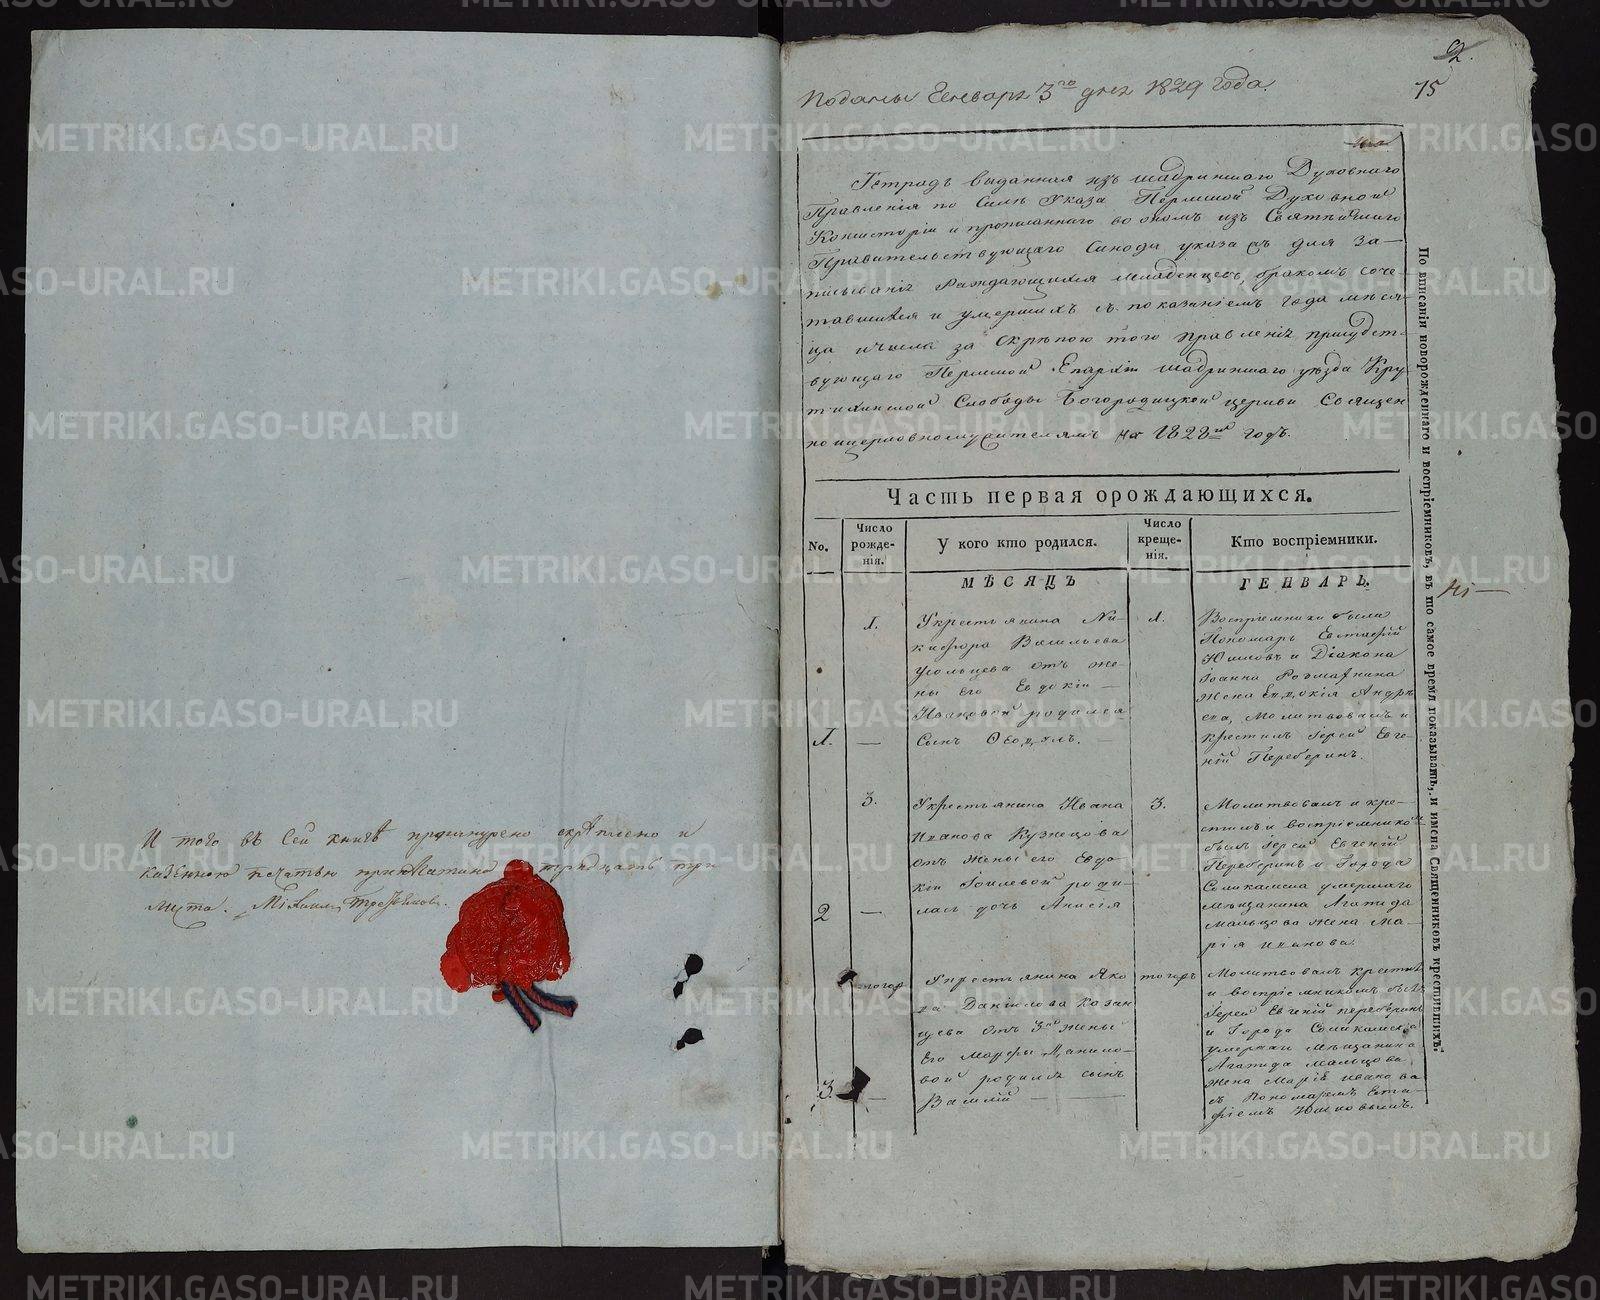 И того въ сей книгѣ прошнурено скрѣплено и
казенною печатью припечатано тридцать три
листа. Михаилъ
2.
75
Поданы Генваря 3го дня 1829 года.
Тетрадь выданная изъ Шадринскаго Духовнаго
Правленія по силѣ Указа Пермской Духовной
Консисторіи и прописаннаго во ономъ изъ Святѣйшаго
Правительствующаго Синода указа съ для за-
писыванія Раждающихся младенцевъ, бракомъ соче-
тавшихся и умершихъ съ показаніемъ года меся-
ца и числа за скрѣпою того правленія присудст-
вующаго Пермской Епархіи Шадринскаго уѣзда Кру-
тихинской Слободы Богородицкой церкви Священ
ноцерковнослужителямъ на 1828й годъ.
Часть первая орождающихся.
No.
Число рожде-нія.
У кого кто родился.
Число креще-нія.
Кто воспріемники.
МѢСЯЦЪ
ГЕНВАРЬ.
1.
1.
Укрестьянина Ни-
кифора Васильева
Угольцева отъ же-
ны его Евдокіи
Ивановой родился
Сынъ
1.
Воспріемники были
Пономарь Евстафій
Юшковъ и Діакона
Іоанна
жена Евдокія Андре
ева, Молитвовалъ и
крестилъ Іерей Евге-
ній Переберинъ.
2
3.
Укрестьянина Ивана
Иванова Кузнецова
отъ жены его Евдо-
кіи родил-
лась дочь Анисія
3.
Молитвовалъ и кре-
стилъ и воспріемникомъ
былъ Іерей Евгеній
Переберинъ и Города
Соликамска умершаго
мѣщанина Агапида
Мальцова жена Ма-
рія иванова.
3.
тогож
Укрестьянина Яко
ва Данілова Казан
цева отъ 3ей жены
Его Марфы Данило-
вой родился сынъ
Василій
тогожъ
Молитвовалъ крестилъ
и воспріемникомъ былъ
Іерей Евгеній переберинъ
и Города Соликамска
умершаго Мѣщанина
Агапида мальцова
жена Марія иванова
съ Пономаремъ Евста
фіемъ Юшковымъ.
По вписаніи новорожденнаго и воспріемниковъ, въ то самое время показывать, и имена Священниковъ крестившихъ.
METRIKI.GASO-URAL.RU